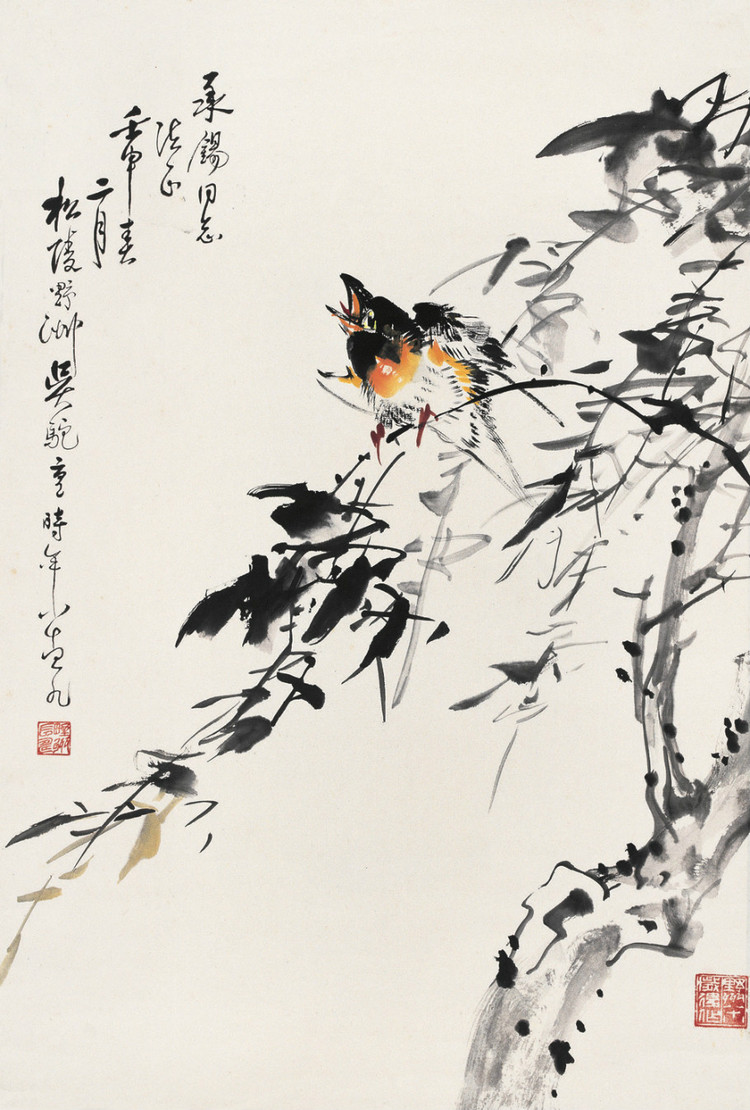 承錫同志
法正
壬申春
二月
松陵野洲吳駝時年八十有九